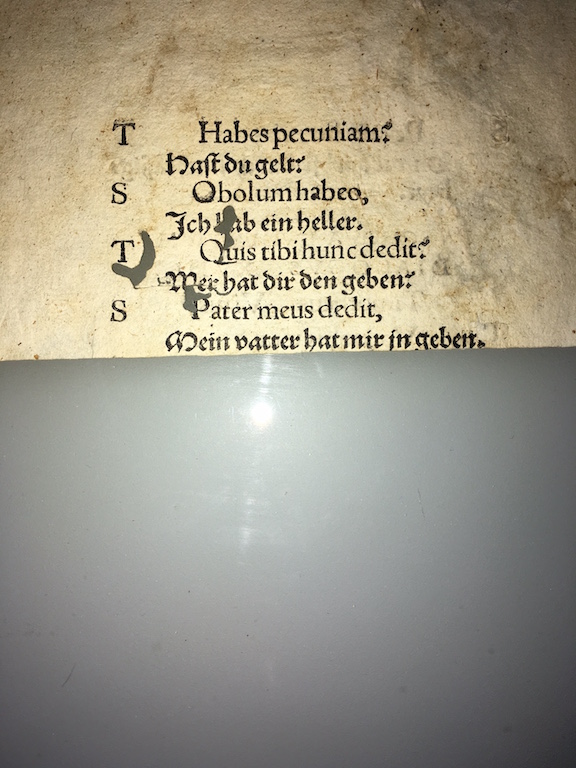 T Habes pecuniam?
Hast du gelt?
S Obolum habeo,
Ich hab ein heller.
T Quis tibi hunc dedit?
Wer hat dir den geben?
S Pater meus dedit,
Mein vatter hat mir jn geben.